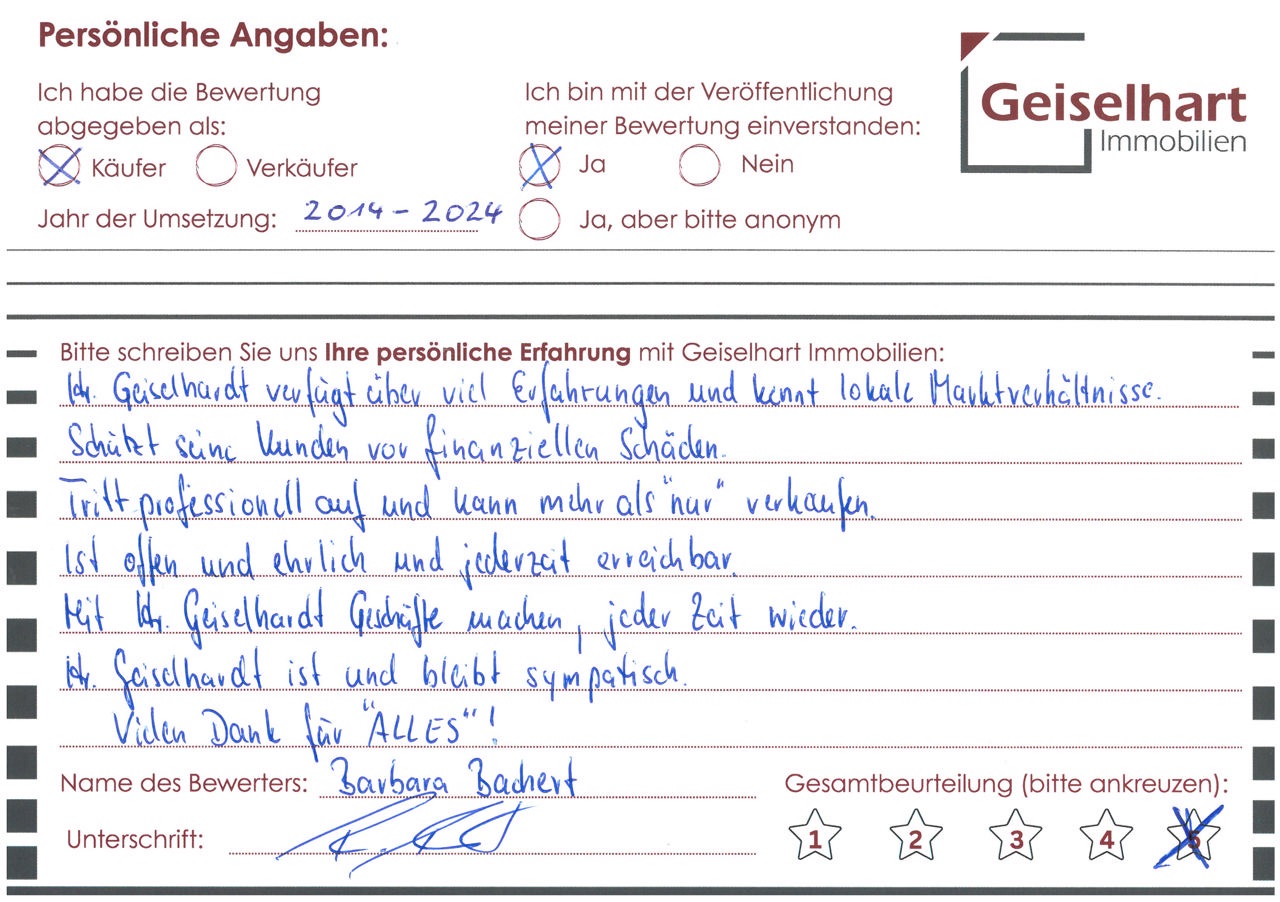 Persönliche Angaben:
Geiselhart
Immobilien
Ich habe die Bewertung
abgegeben als:
Käufer
Verkäufer
Jahr der Umsetzung: 2014 - 2024
Ich bin mit der Veröffentlichung
meiner Bewertung einverstanden:
Ja
Nein
Ja, aber bitte anonym
Bitte schreiben Sie uns Ihre persönliche Erfahrung mit Geiselhart Immobilien:
Hr. Geiselhardt verfügt über viel Erfahrungen und kennt lokale Marktverhältnisse.
Schützt seine Kunden vor finanziellen Schäden.
Tritt professionell auf und kann mehr als "nur" verkaufen.
Ist offen und ehrlich und jederzeit erreichbar.
Mit Hr. Geiselhardt Geschäfte machen, jeder Zeit wieder.
Hr. Geiselhardt ist und bleibt sympatisch.
Vielen Dank für "ALLES"!
Name des Bewerters: Barbara Bachert
Gesamtbeurteilung (bitte ankreuzen):
Unterschrift:
1 2 3 4 5